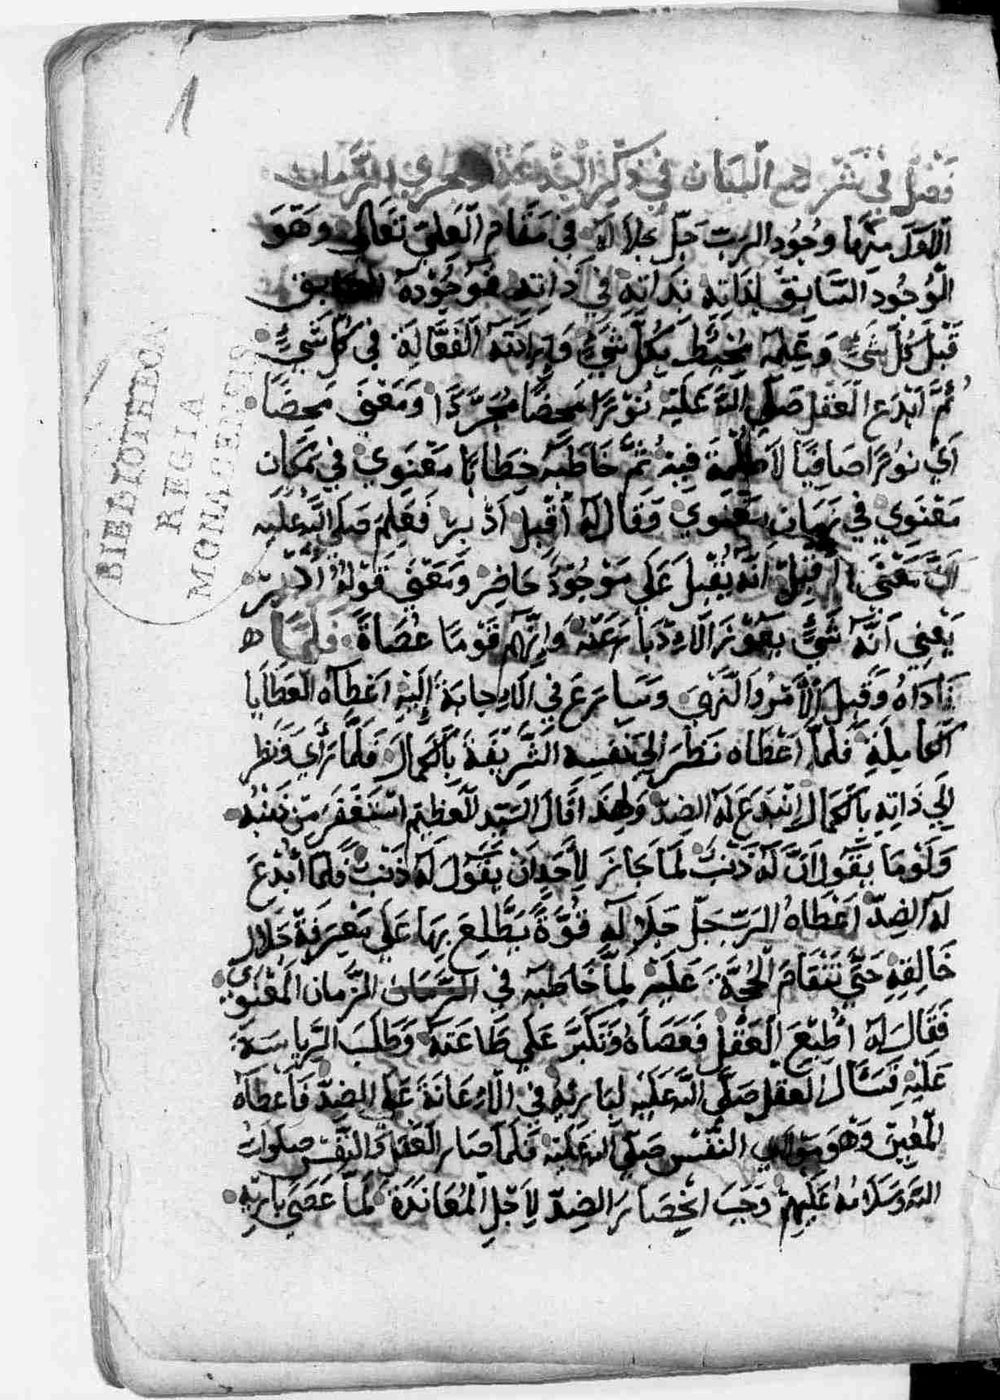 1
فصل في شرح البيان في ذكر الزمان
الاول منها وجود الرب جل جلاله في مقام العلي تعالى وهو
الوجود السابق لذاته بذاته في ذاته موجوده السابق
قبل كل شيء وعلمه محيط بكل شيء وارادته الفعالة في كل شيء
ثم ابدع العقل صلى الله عليه نورًا محضًا مجردًا ومعنى محضًا
اي نورًا صافيًا لا ظلمة فيه ثم خاطبه خطابًا معنوي في مكان
معنوي في زمان معنوي وقال له أقبل أدبر فعلم صلى الله عليه
ان معنى أقبل انه يقبل على موجود حاضر ومعنى قوله أدبر
يعني انه شيء يعوز الادبار عنه وانهم قومًا عصاة فلما
ناداه وقبل الأمر والنهي وسارع في الاجابة إليه اعطاه العطايا
الكاملة فلما اعطاه نظر الى نفسه الشريفة بالكمال فلما رأى ونظر
الى ذاته بالكمال انبدع له الضد ولهذا قال السيد العظيم استغفر من ذنبه
ولو ما يقول ان له ذنب لما جاز لأحد ان يقول له ذنب فلما أبدع
له الضد اعطاه الرب جل جلاله قوة يطلع بها على معرفة جلال
خالقه حتى تنقام الحجة عليه لما خاطبه في الزمان الزمان المعنوي
فقال له اطيع العقل فعصاه وتكبر على طاعته وطلب الرياسة
عليه فسأل العقل صلى الله عليه لباريه في الاعانة على الضد فأعطاه
المعين وهو مولاي النفس صلى الله عليه فلما صار العقل والنفس صلوات
الله وسلامه عليهم وجب احضار الضد لأجل المعاندة لما عصى باريه
BIBLIOTHECA
REGIA
MONACENSIS